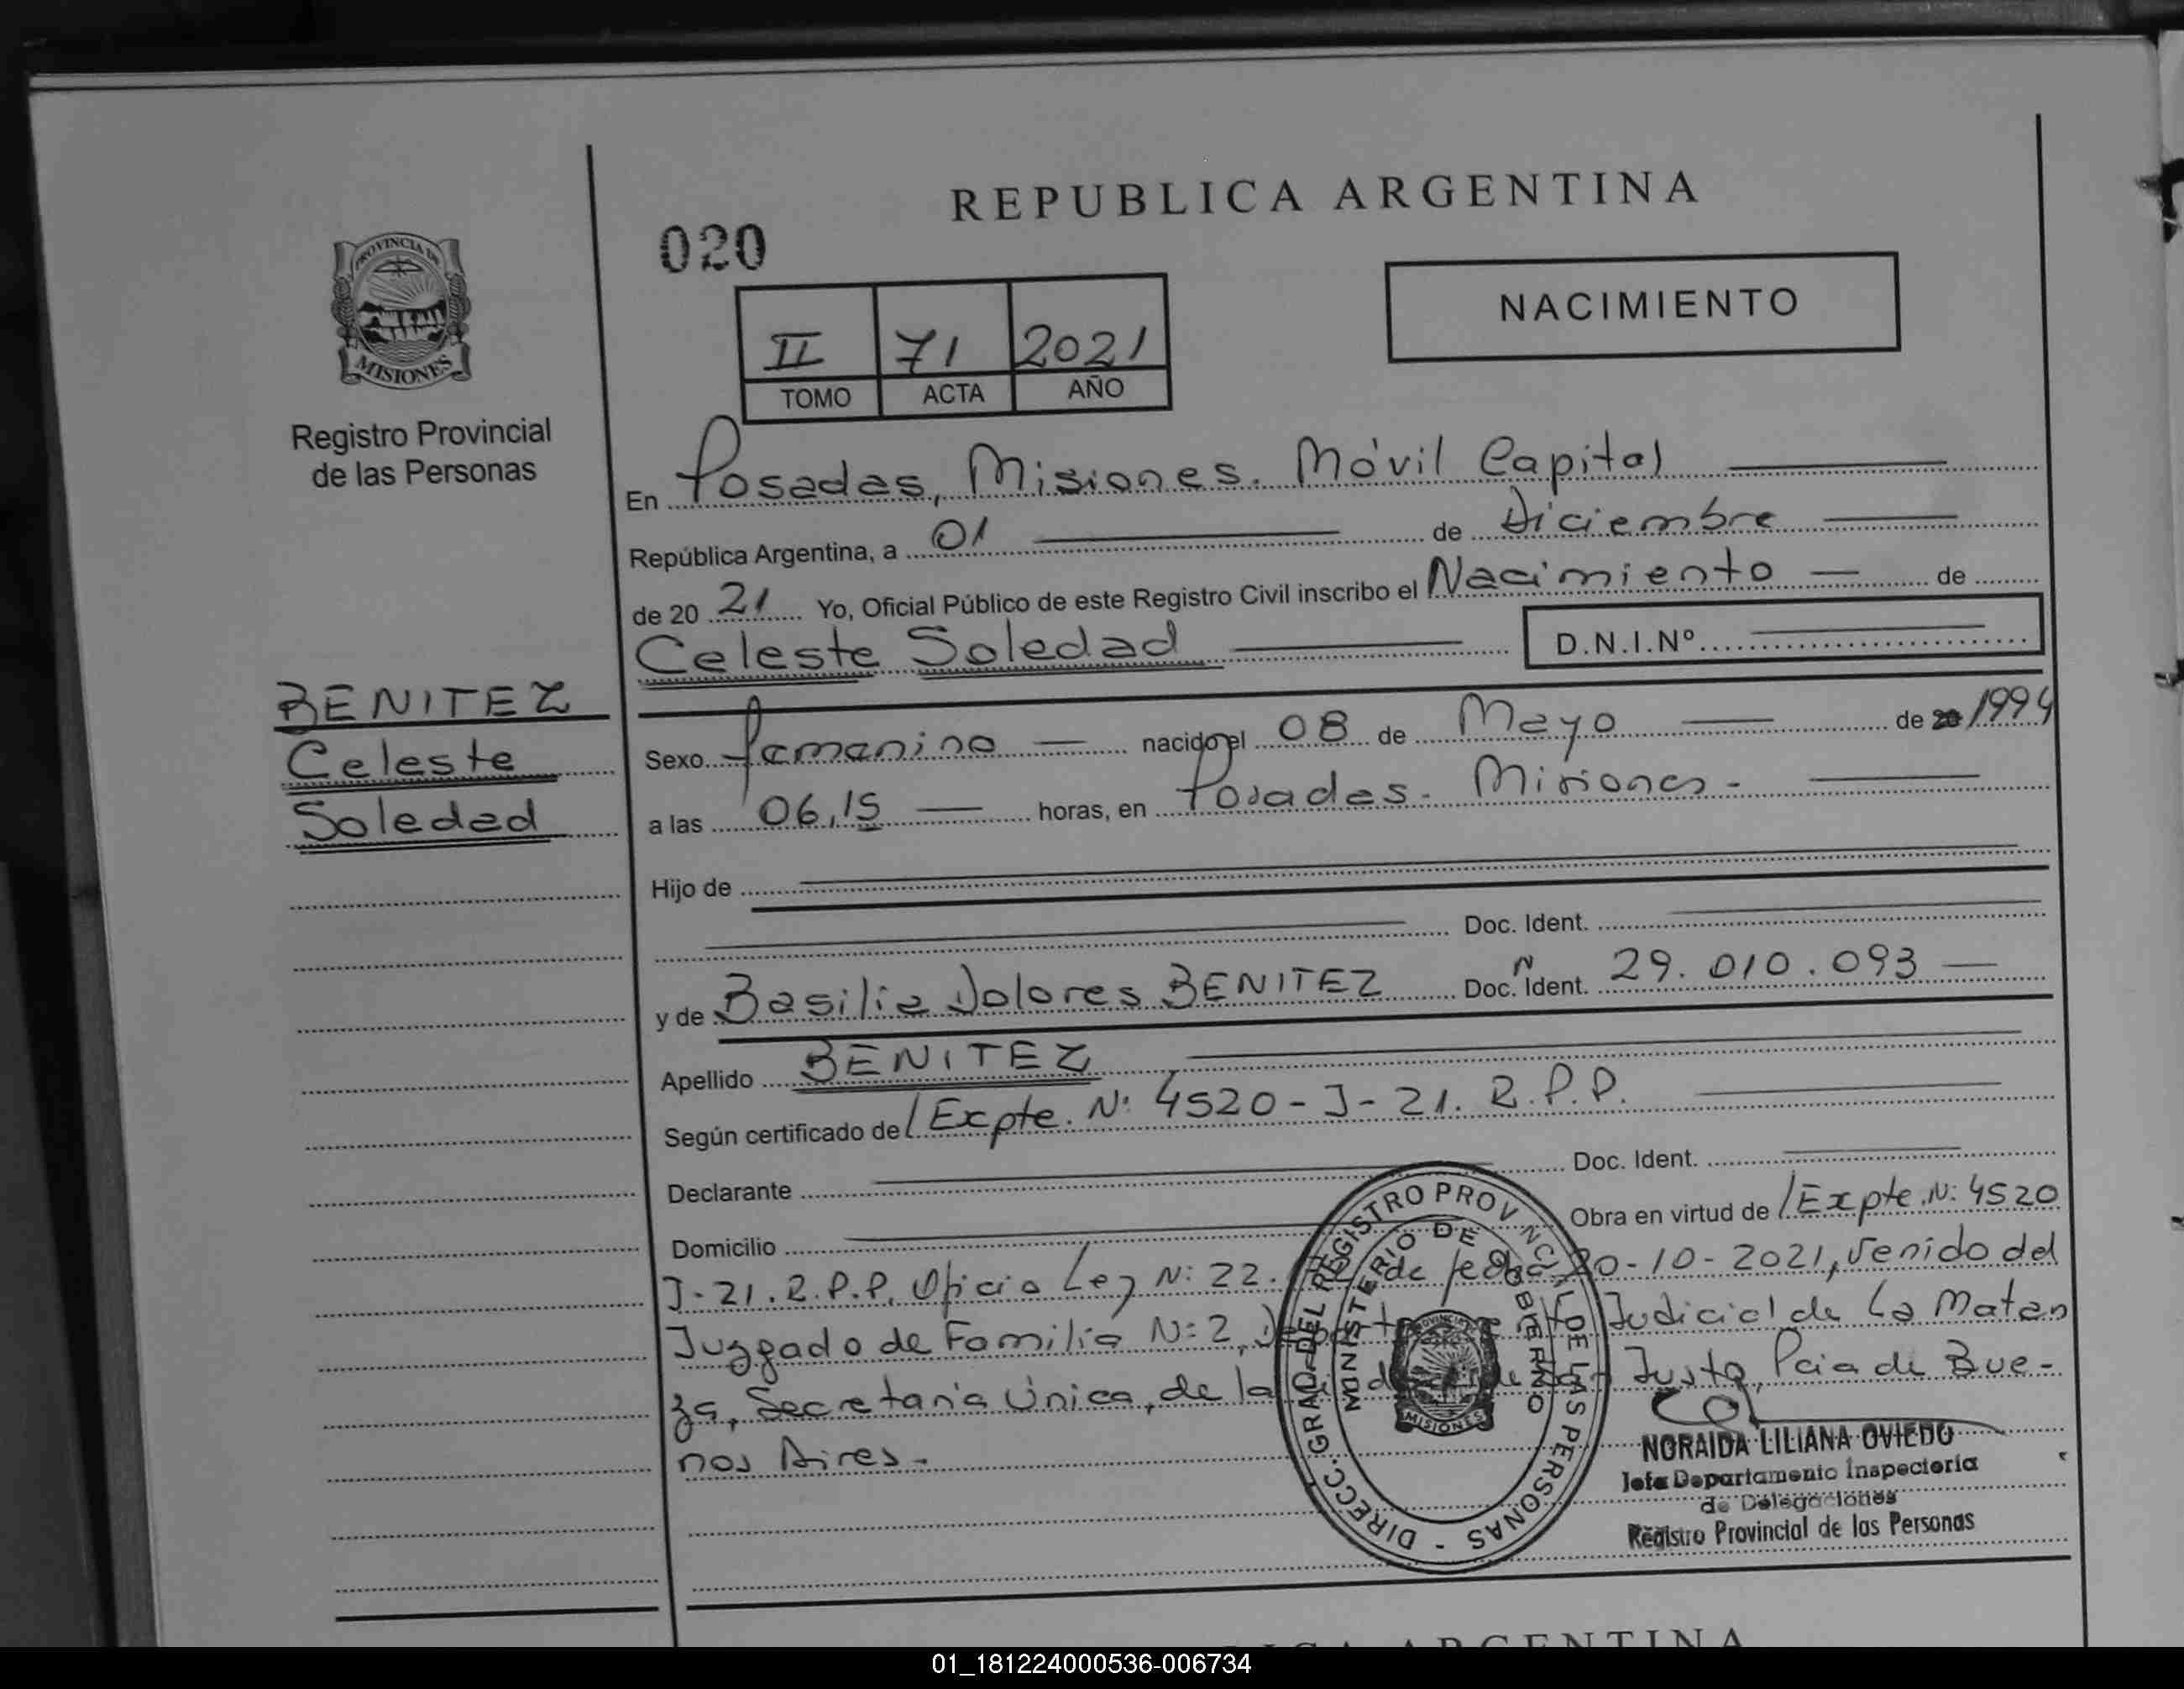 REPUBLICA ARGENTINA
020
NACIMIENTO
II 71 2021
TOMO ACTA AÑO
PROVINCIA DE
MISIONES
Registro Provincial
de las Personas
En Posadas, Misiones. Móvil Capital
República Argentina, a 01 de Diciembre
de 20 21 Yo, Oficial Público de este Registro Civil inscribo el Nacimiento de
Celeste Soledad D.N.I.Nº
BENITEZ
Celeste
Soledad
Sexo femenino nacido el 08 de Mayo de 20 1994
a las 06,15 horas, en Posadas. Misiones.
Hijo de
Doc. Ident.
y de Basilia Dolores BENITEZ Doc. N Ident. 29.010.093
Apellido BENITEZ
Según certificado de Expte. N: 4520-J-21. R.P.P.
Declarante Doc. Ident.
Domicilio Obra en virtud de Expte. N: 4520
J-21. R.P.P. Oficio Ley N: 22. de fecha 20-10-2021, venido del
Juzgado de Familia N: 2, Judicial de La Matan
za, Secretaría Única, de la Justo, Pcia de Bue-
nos Aires.
DIRECC. GRAL DEL REGISTRO PROVINCIAL DE LAS PERSONAS -
MINISTERIO DE GOBIERNO
MISIONES
NORAIDA LILIANA OVIEDO
Jefa Departamento Inspectoría
de Delegaciones
Registro Provincial de las Personas
ARGENTINA
01_181224000536-006734